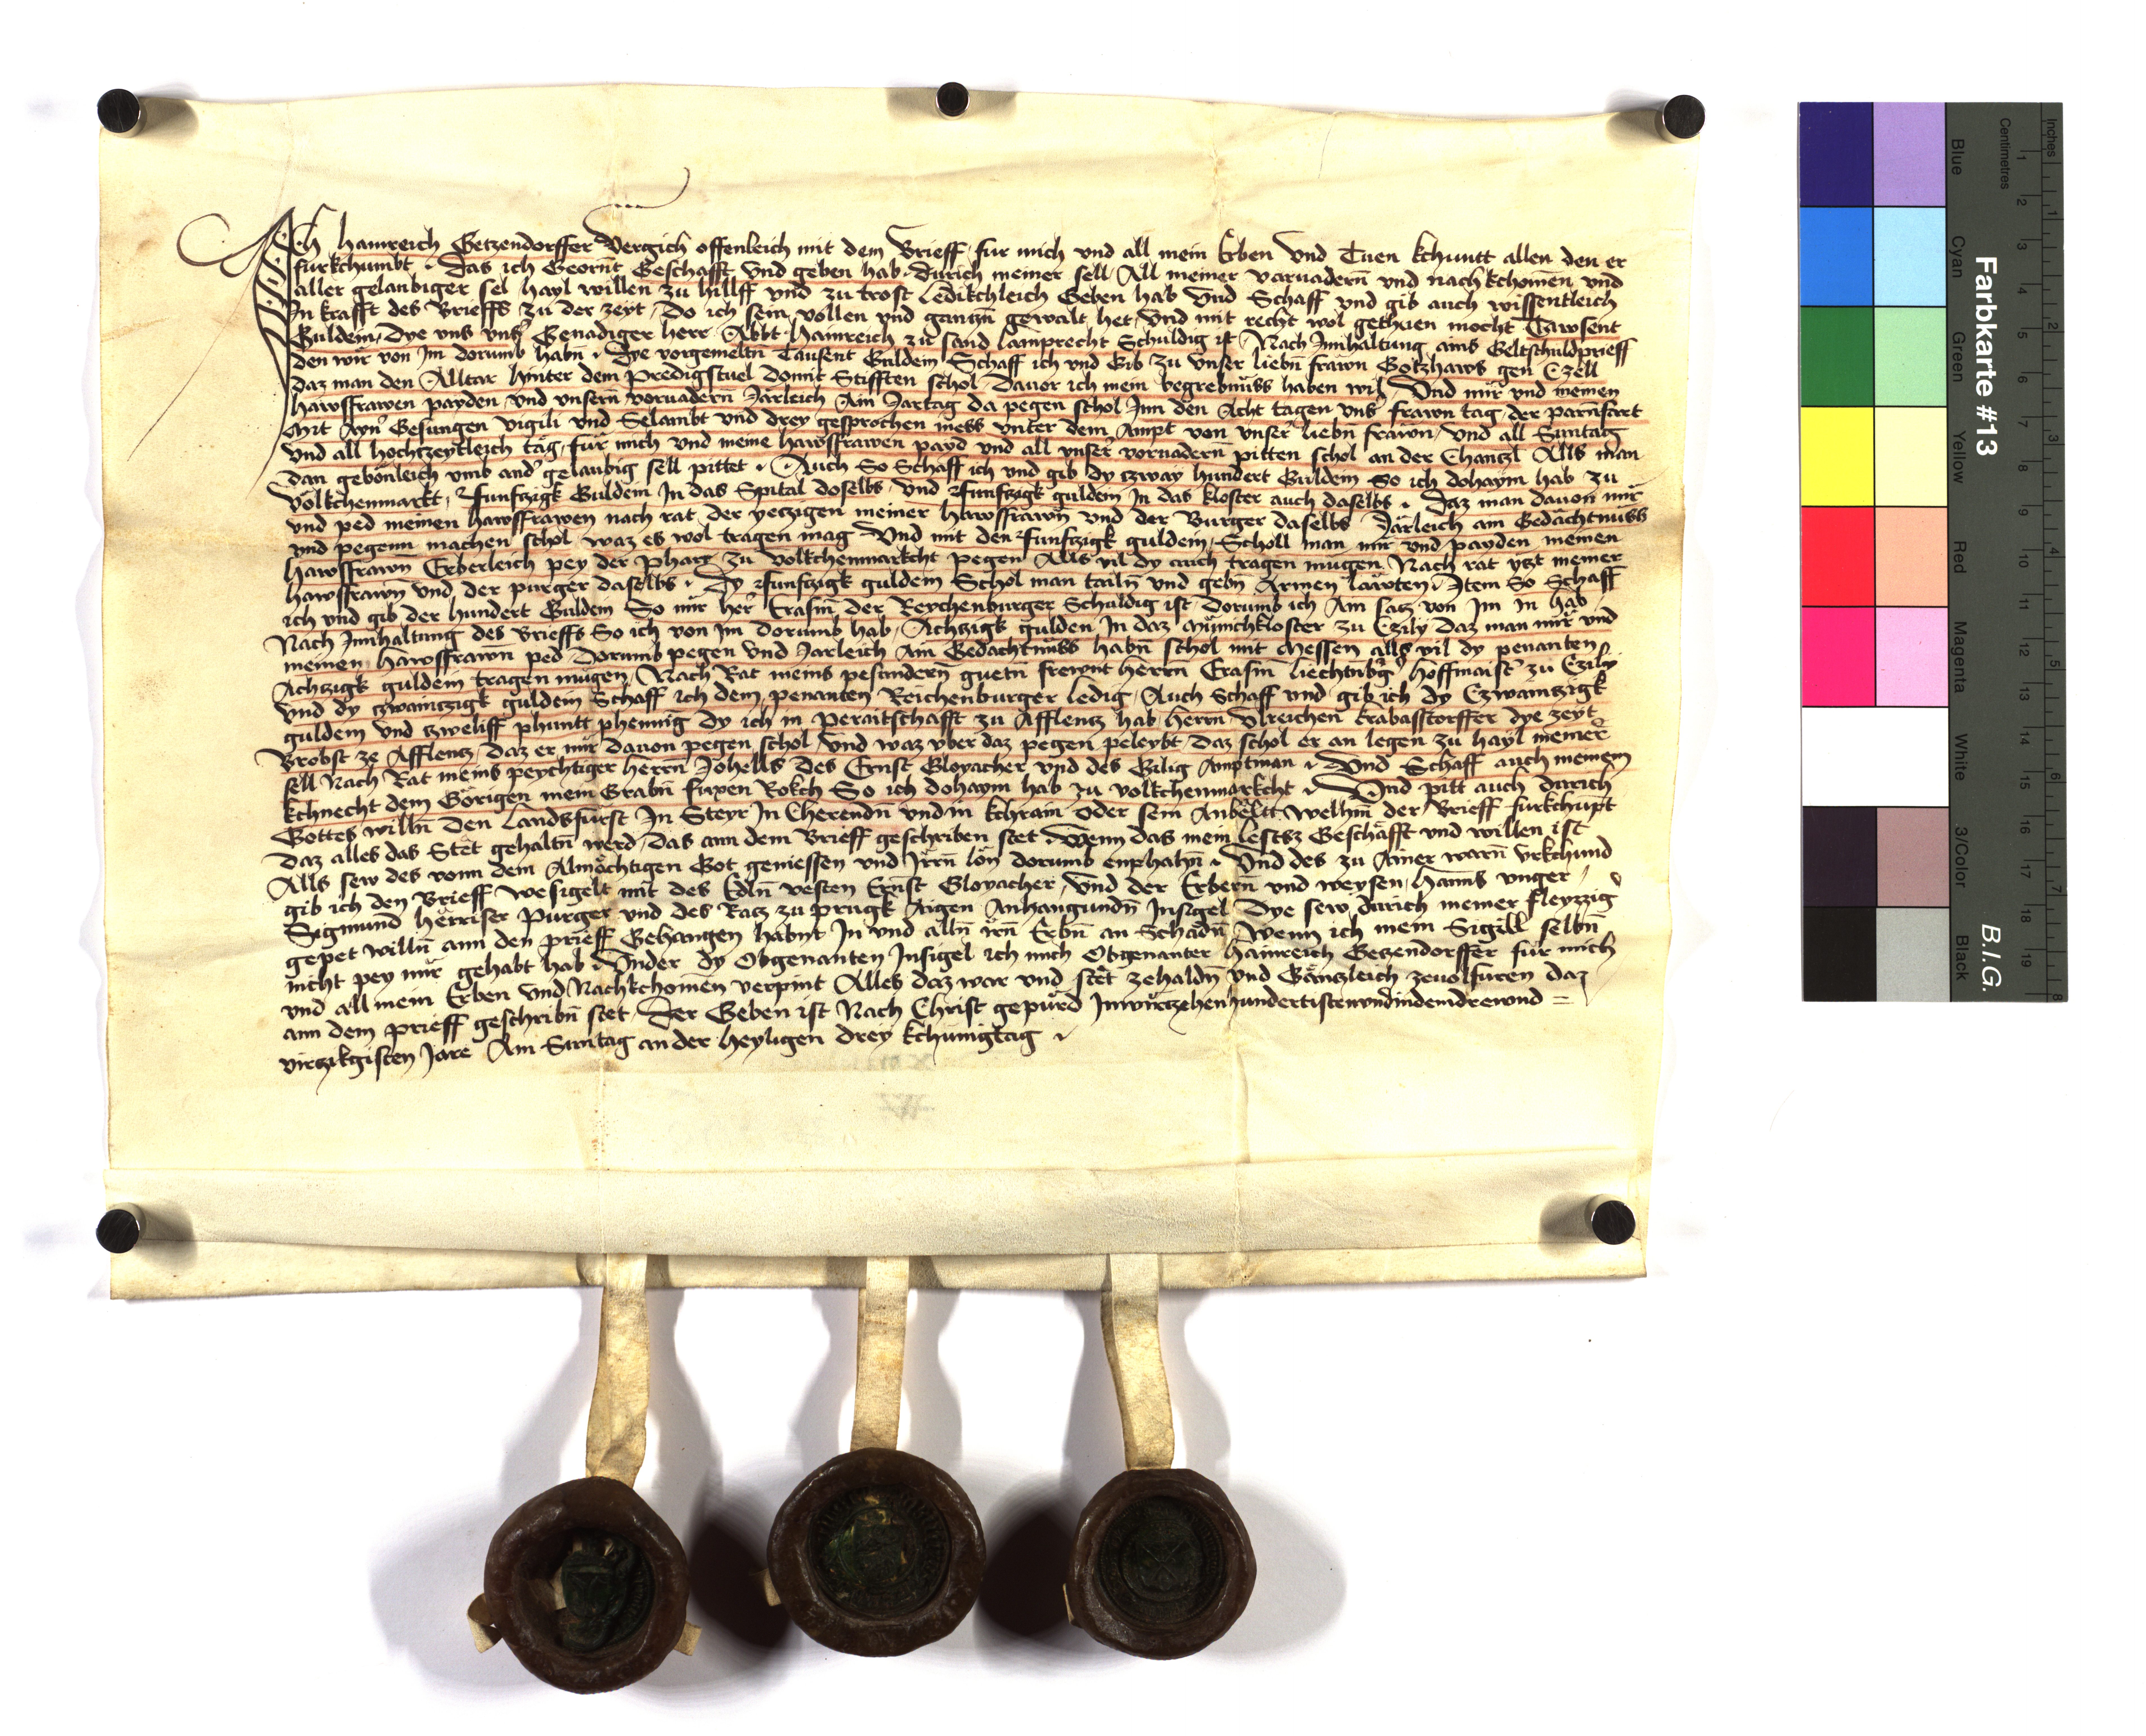 Ich Hainreich Getzendorffer Vergich offenleich mit dem Brieff fur mich vnd all mein Erben Vnd Tuen kchuntt allen den er
furkchumbt Das ich Georn̄t Geschafft Vnd geben hab durich meiner sell All meiner voruadern̄ vnd nachkchomen̄ vnd
aller gelaubiger sel hayl willen zu hillff vnd zu trost Ledikchleich Geben hab Vnd Schaff vnd gib auch wissentleich
In krafft des Brieffs zu der zeyt Do ich sein vollen vnd gantzn̄ gewalt het vnd mit recht wol gethuen mocht Tawsent
Guldein Dye vns vns̄ Genadiger herr Abbt Hainreich zu sand Lamprecht Schuldig ist Nach Innhaltung ains Geltschuldprieff
den wir von Im dorumb habn̄ Dye vorgemeltn̄ Tausent Guldein Schaff ich vnd Gib zu vnser liebn̄ frawn̄ Gotzhaws gen Czell
daz man den Alltar hinter dem Predigstuel domit Stifften schol Dauor ich mein begrebnüss haben wil Vnd mir vnd meinen
hawsfrawen payden vnd vnsern̄ voruadern Jarleich Ain Jartag da pegen schol Inn den Acht tagen vns̄ frawn tag der
Mit Ayn̄ Gesungen vigili vnd Selambt vnd drey gesprochen mess vnter dem Ampt von vnser̄ liebn̄ frawn̄ vnd all Suntag
Vnd all hochtzeytleich täg für mich vnd meine hawsfrawen payd vnd all vnser̄ voruadern̄ pitten schol an der Chantzl Alls man
dan gebönleich vmb and̄ gelaubig sell pittet Auch So Schaff ich vnd gib dy tzway hundert Guldein So ich dohaym hab zu
Völkchenmarkt funftzigk Guldein In das Spital doselbs vnd funftzigk guldein In das kloster auch daselbs Daz man dauon mir
vnd ped meinen hawsfrawen nach rat der yetzigen meiner hawsfrawn̄ vnd der Burger daselbs Järleich ain Gedächtnüss
vnd pegenn machen schol waz es wol tragen mag Vnd mit den funftzigk guldein Scholl man mir vnd payden meinen
hawsfrawn̄ Erberleich pey der Pharr zu volkchenmarkcht pegen Alls vil dy auch tragen mugen Nach rat yetzt meiner
hawsfrawn̄ vnd der purger daselbs Dy funftzigk guldein Schol man tailn̄ vnd gebn̄ Armen läwten Item So Schaff
ich vnd gib der hundert Guldein So mir her̄ Erasm̄ der Reychenburger Schuldig ist Dorumb ich Ain satz von Im In hab
Nach Innhaltung des Brieffs So ich von Im dorumb hab Achtzigk gulden In daz Münichkloster zu Czily Daz man mir vnd
meinen hawsfrawn̄ ped Dorumb pegen vnd Jarleich Ain Gedachtnüss habn̄ schol mit Messen alls vil dy penanten
Achtzigk guldein tragen mügen Nach Rat meins pesundern̄ guetn̄ frewnt herrn̄ Erasm̄ hoffmaist̄ zu Czily
Vnd dy tzwaintzigk guldein Schaff ich dem penanten Reichenburger ledig Auch Schaff vnd gib ich dy Czwaintzigk
guldein vnd tzweliff phuntt phennig dy ich in peraitschafft zu Afflentz hab herrn̄ Vlreichen dye zeyt
Brobst ze Afflentz daz er mir dauon pegen schol Vnd waz vber daz pegen peleybt Daz schol er an legen zu hayl meiner
sell Nach Rat meins peychtiger herrn̄ des Ernst Gloyacher vnd des Gilig Amptman Vnd Schaff auch meinem
kchnecht dem Görigen mein Grabn̄ fuxen Rokch So ich dohaym hab zu volkchenmarkcht Vnd pitt auch durich
Gottes willn̄ den Landsfürst In Steyr In Cherendn̄ vnd in kchrain Oder sein Anbëltt Welhm̄ der Brieff furkchupt
Daz alles das Stet gehaltn̄ werd Das ann dem Brieff geschriben stet Wenn das mein lestz Geschäfft vnd willen ist
Alls sew des vonn dem Almöchtigen Got geniessen vnd Irrn̄ lön dorumb enphahn̄ Vnd des zu Ainer warn̄ Vrkchund
gib ich den Brieff Wesigelt mit des Edln̄ vesten Ernst Gloyacher Vnd der Erbern̄ vnd weysen Hanns Vnger
Sigmund Purger vnd des Ratz zu prugk Aigen Anhangundn̄ Insigel Dye sew durich meiner fleyzzig
gepet willn̄ ann den prieff Gehangen habnt In vnd alln̄ irn̄ Erbn̄ an Schadn̄ Wenn ich mein Sigill selbn̄
nicht pey mir gehabt hab Vnder dy Obgenanten Insigel ich mich Obgenanter Hainreich Getzendorffer für mich
vnd all mein Erben Vnd Nachkchomen̄ verpint Alles daz war vnd stët zehaldn̄ vnd Gäntzleich zeuolfuren daz
ann dem prieff geschribn̄ stet Der Geben ist Nach Christ gepurd Inviertzehenhundertistenvndindemdrewnd=
viertzikgisten Jare Am Suntag an der heyligen drey kchunigtag

Farbkarte #13
B.I.G.
Inches
Centimetres
1 2 3 4 5 6 7 8 9 10 11 12 13 14 15 16 17 18 19
1 2 3 4 5 6 7 8
Blue
Cyan
Green
Yellow
Red
Magenta
White
3/Color
Black